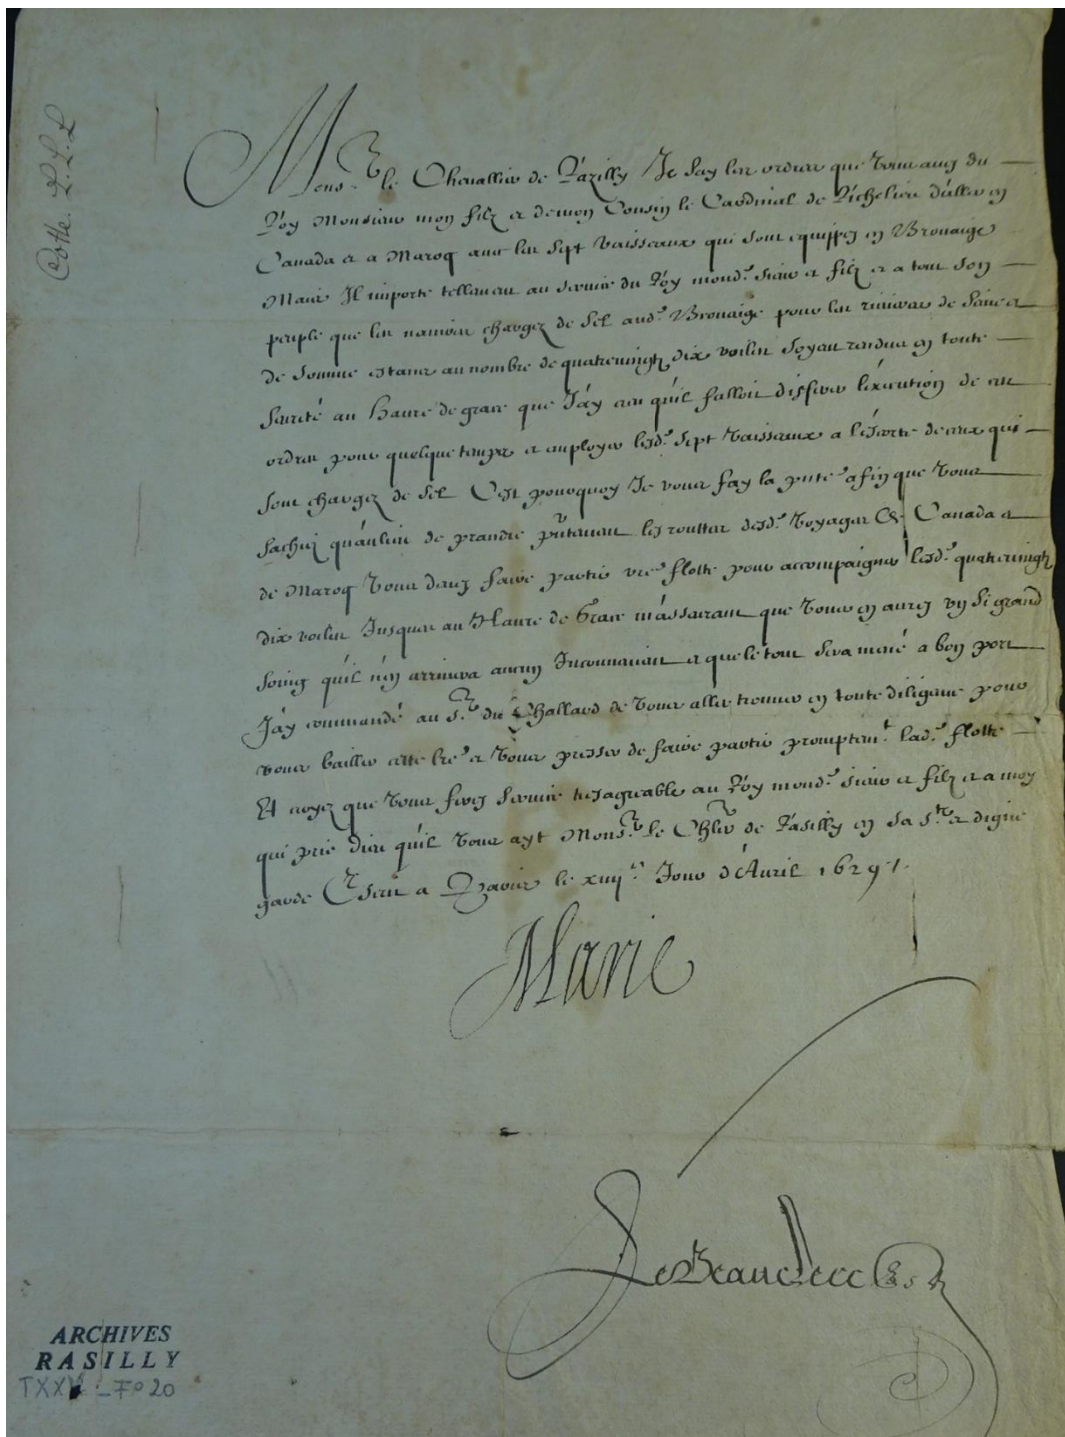 Cotte. L.L.L
Mons.r le Chevallier de Razilly Je scay les ordres que vous avez du
Roy Monsieur mon filz et de mon Cousin le Cardinal de Richelieu d'aller en
Canada et a Maroq avec les sept vaisseaux qui sont equippez en Brouaige
Mais Il importe tellement au service du Roy mond.t sieur et filz et a tout son
peuple que les navires chargez de sel aud.t Brouaige pour les rivieres de Seine et
de Somme estans au nombre de quatrevingtz dix voilles soyent rendus en toute
seureté au havre de grace que J'ay creu qu'il falloit differer l'execution de ces
ordres pour quelque temps et employer lesd.ts sept vaisseaux a l'escorte de ceux qui
sont chargez de sel C'est pourquoy Je vous fay la pnte afin que vous
sachiez qu'au lieu de prandre pntement les routtes desd.ts voyages de Canada et
de Maroq vous devez faire partir vre flotte pour accompaigner lesd.ts quatrevingtz
dix voilles Jusques au Havre de Grace m'asseurant que vous en aurez un si grand
soing qu'il n'en arrivera aucun Inconveniant et que le tout sera mené a bon port
J'ay commandé au S.r du Challard de vous aller trouver en toute diligence pour
vous bailler cette lre et vous presser de faire partir promptem.t lad.te flotte
Et croyez que vous ferez service tres agreable au Roy mond.t sieur et filz et a moy
qui prie dieu qu'il vous ayt Mons.r le Chlr de Rasilly en sa s.te et digne
garde Escrit a Paris le xiiij.e Jour d'Avril 1629
Marie
De Beauclerc
ARCHIVES
RASILLY
F° 20